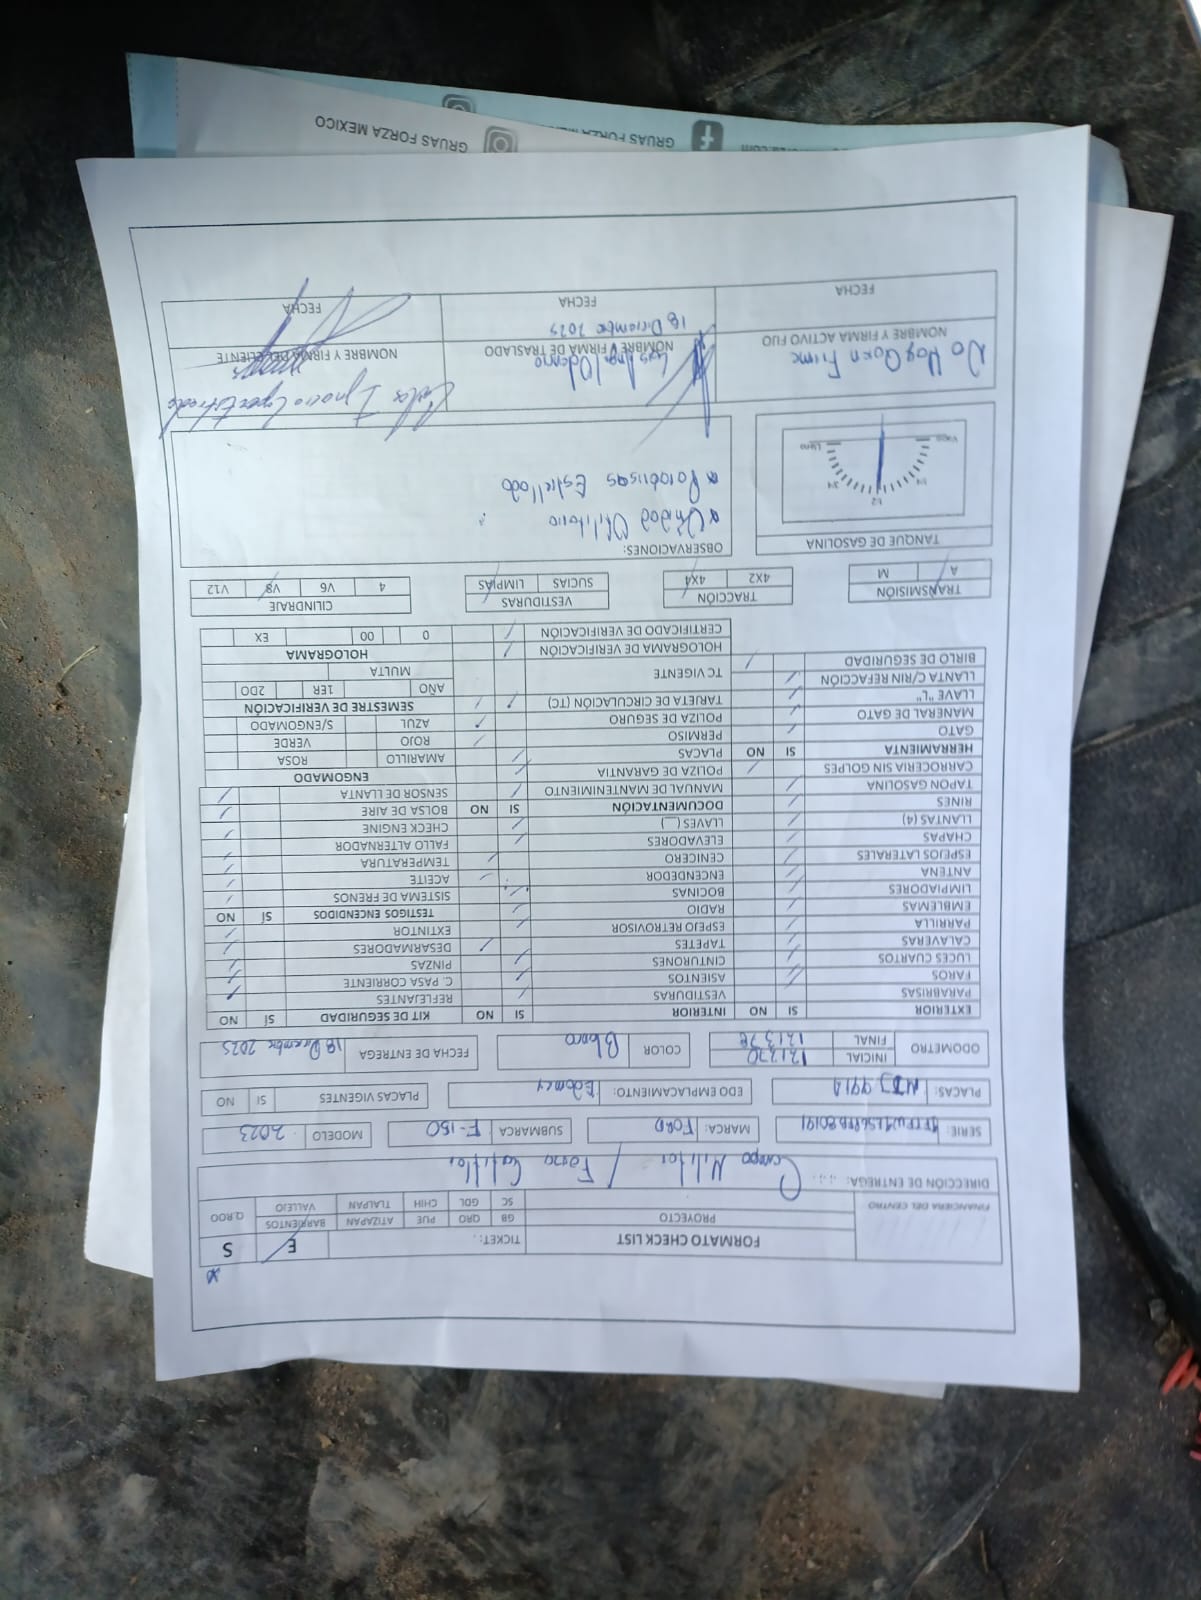 FORMATO CHECK LIST
TICKET:
E
S
FINANCIERA DEL CENTRO
PROYECTO
GB
QRO
PUE
ATIZAPAN
BARRIENTOS
Q.ROO
SC
GDL
CHIH
TLALPAN
VALLEJO
DIRECCIÓN DE ENTREGA:
Campo Militar /
SERIE:
MARCA: FORD
SUBMARCA F-150
MODELO 2023
PLACAS:
EDO EMPLACAMIENTO: Edomex
PLACAS VIGENTES SI NO
ODOMETRO
INICIAL 121370
FINAL 121378
COLOR Blanco
FECHA DE ENTREGA 18 Diciembre 2025
EXTERIOR SI NO INTERIOR SI NO KIT DE SEGURIDAD SÍ NO
PARABRISAS VESTIDURAS REFLEJANTES
FAROS ASIENTOS C. PASA CORRIENTE
LUCES CUARTOS CINTURONES PINZAS
CALAVERAS TAPETES DESARMADORES
PARRILLA ESPEJO RETROVISOR EXTINTOR
EMBLEMAS RADIO TESTIGOS ENCENDIDOS SÍ NO
LIMPIADORES BOCINAS SISTEMA DE FRENOS
ANTENA ENCENDEDOR ACEITE
ESPEJOS LATERALES CENICERO TEMPERATURA
CHAPAS ELEVADORES FALLO ALTERNADOR
LLANTAS (4) LLAVES (__) CHECK ENGINE
RINES DOCUMENTACIÓN SI NO BOLSA DE AIRE
TAPON GASOLINA MANUAL DE MANTENIMIENTO SENSOR DE LLANTA
CARROCERIA SIN GOLPES POLIZA DE GARANTIA ENGOMADO
HERRAMIENTA SI NO PLACAS AMARILLO ROSA
GATO PERMISO ROJO VERDE
MANERAL DE GATO POLIZA DE SEGURO AZUL S/ENGOMADO
LLAVE "L" TARJETA DE CIRCULACIÓN (TC) SEMESTRE DE VERIFICACIÓN
LLANTA C/RIN REFACCIÓN TC VIGENTE AÑO 1ER 2DO
BIRLO DE SEGURIDAD MULTA
HOLOGRAMA DE VERIFICACIÓN HOLOGRAMA
CERTIFICADO DE VERIFICACIÓN 0 00 EX
TRANSMISIÓN
A M
TRACCIÓN
4X2 4X4
VESTIDURAS
SUCIAS LIMPIAS
CILINDRAJE
4 V6 V8 V12
TANQUE DE GASOLINA
Vacio 1/4 1/2 3/4 Lleno
OBSERVACIONES:
Unidad Utilitario
Parabrisas Estrellado
No Hay Quien Firme
Luis Angel
Carlos Ignacio
NOMBRE Y FIRMA ACTIVO FIJO
NOMBRE Y FIRMA DE TRASLADO
NOMBRE Y FIRMA DEL CLIENTE
18 Diciembre 2025
FECHA
FECHA
FECHA
GRUAS FORZA MEXICO
GRUAS FORZA
.com